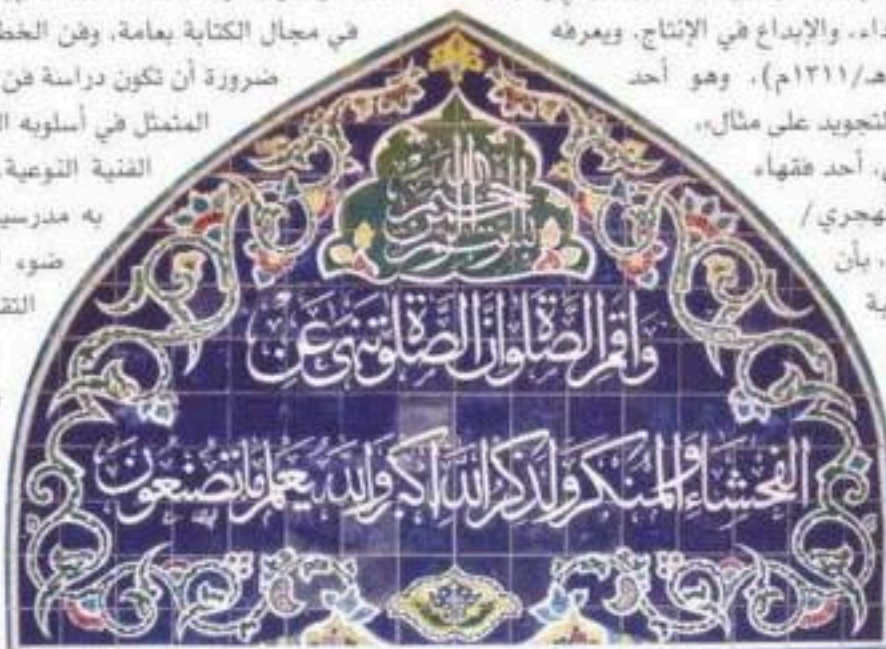 داء، والإبداع في الإنتاج. ويعرفه
هـ/١٣١١م)، وهو أحد
لتجويد على مثال»،
أحد فقهاء
لهجري/
بأن
في مجال الكتابة بعامة، وفن الخط
ضرورة أن تكون دراسة فن
المتمثل في أسلوبه
الفنية النوعية،
به مدرسي
ضوء
التق
بسم الله الرحمن الرحيم
واقم الصلوة ان الصلوة تنهى عن
الفحشاء والمنكر ولذكر الله اكبر والله يعلم ما تصنعون